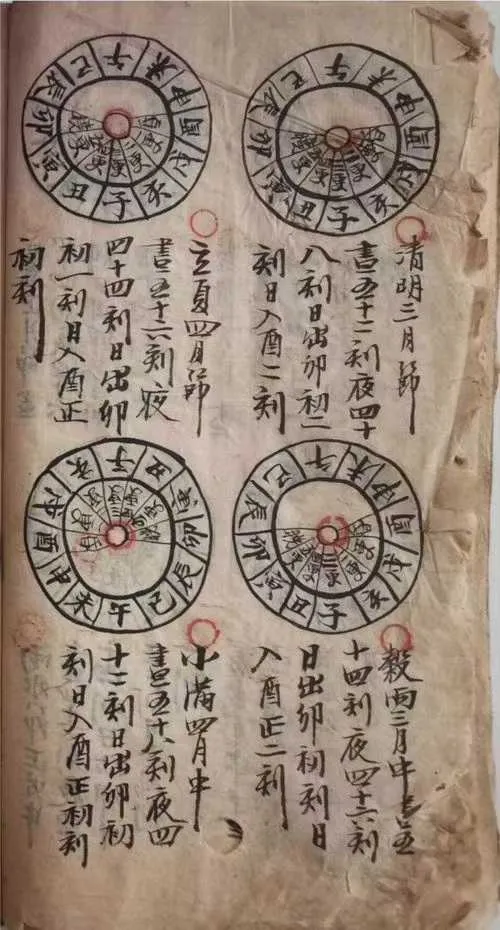 子丑寅卯辰己午未申酉戌亥
三更
清明三月節
晝五十二刻夜四十
八刻日出卯初二
刻日入酉二刻
子丑寅卯辰己午未申酉戌亥
三更
立夏四月節
晝五十六刻夜
四十四刻日出卯
初一刻日入酉正
初刻
子丑寅卯辰己午未申酉戌亥
三更
穀雨三月中晝五
十四刻夜四十六刻
日出卯初刻日
入酉正二刻
子丑寅卯辰己午未申酉戌亥
三更
小滿四月中
晝五十八刻夜四
十二刻日出卯初
刻日入酉正初刻